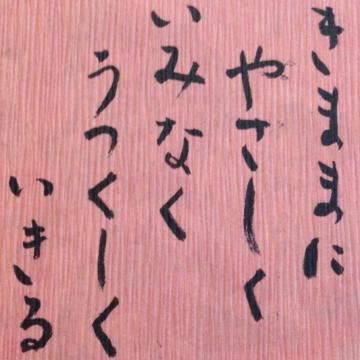 きままに
やさしく
いみなく
うつくしく
いきる